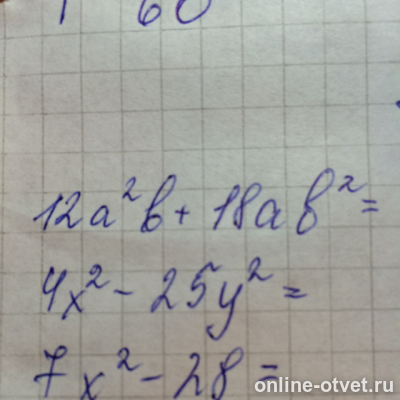 12a²b + 18ab² =
4x² - 25y² =
7x² - 28 =
online-otvet.ru